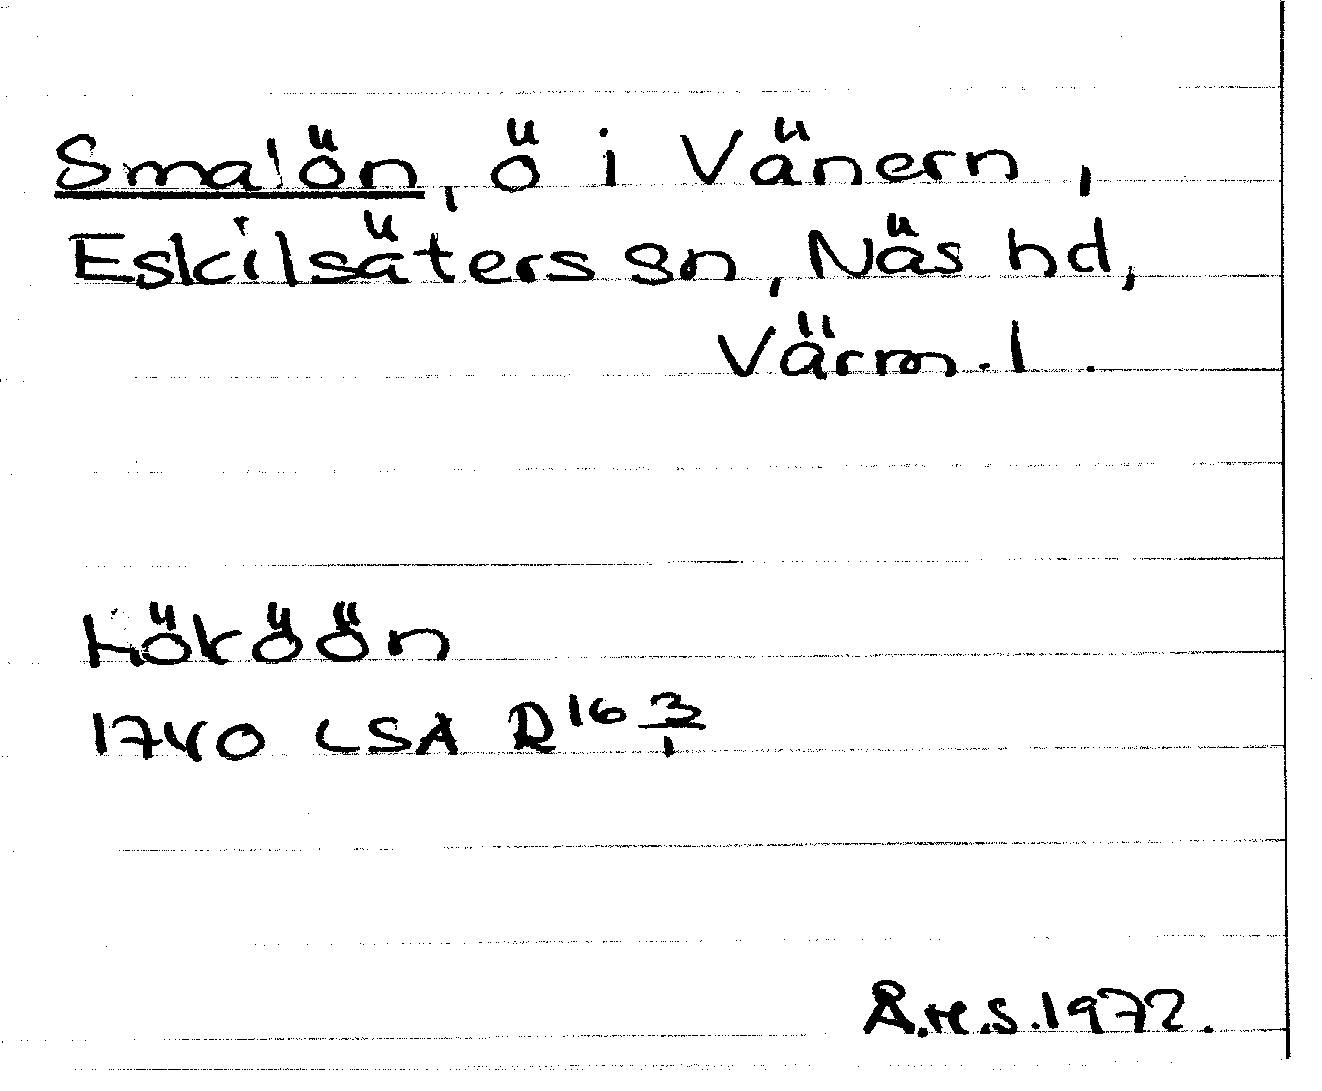 Smalön, ö i Vänern,
Eskilsäters sn, Näs hd,
Värm. l.
Hököön
1740 LSA R16 3/1
Å.H.S. 1972.